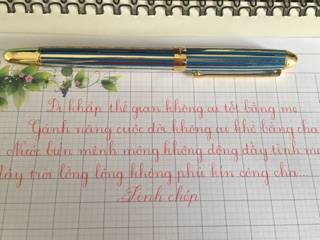 Đi khắp thế gian không ai tốt bằng mẹ
Gánh nặng cuộc đời không ai khổ bằng cha
Nước biển mênh mông không đong đầy tình mẹ
Mây trời lồng lộng không phủ kín công cha
Sinh chép